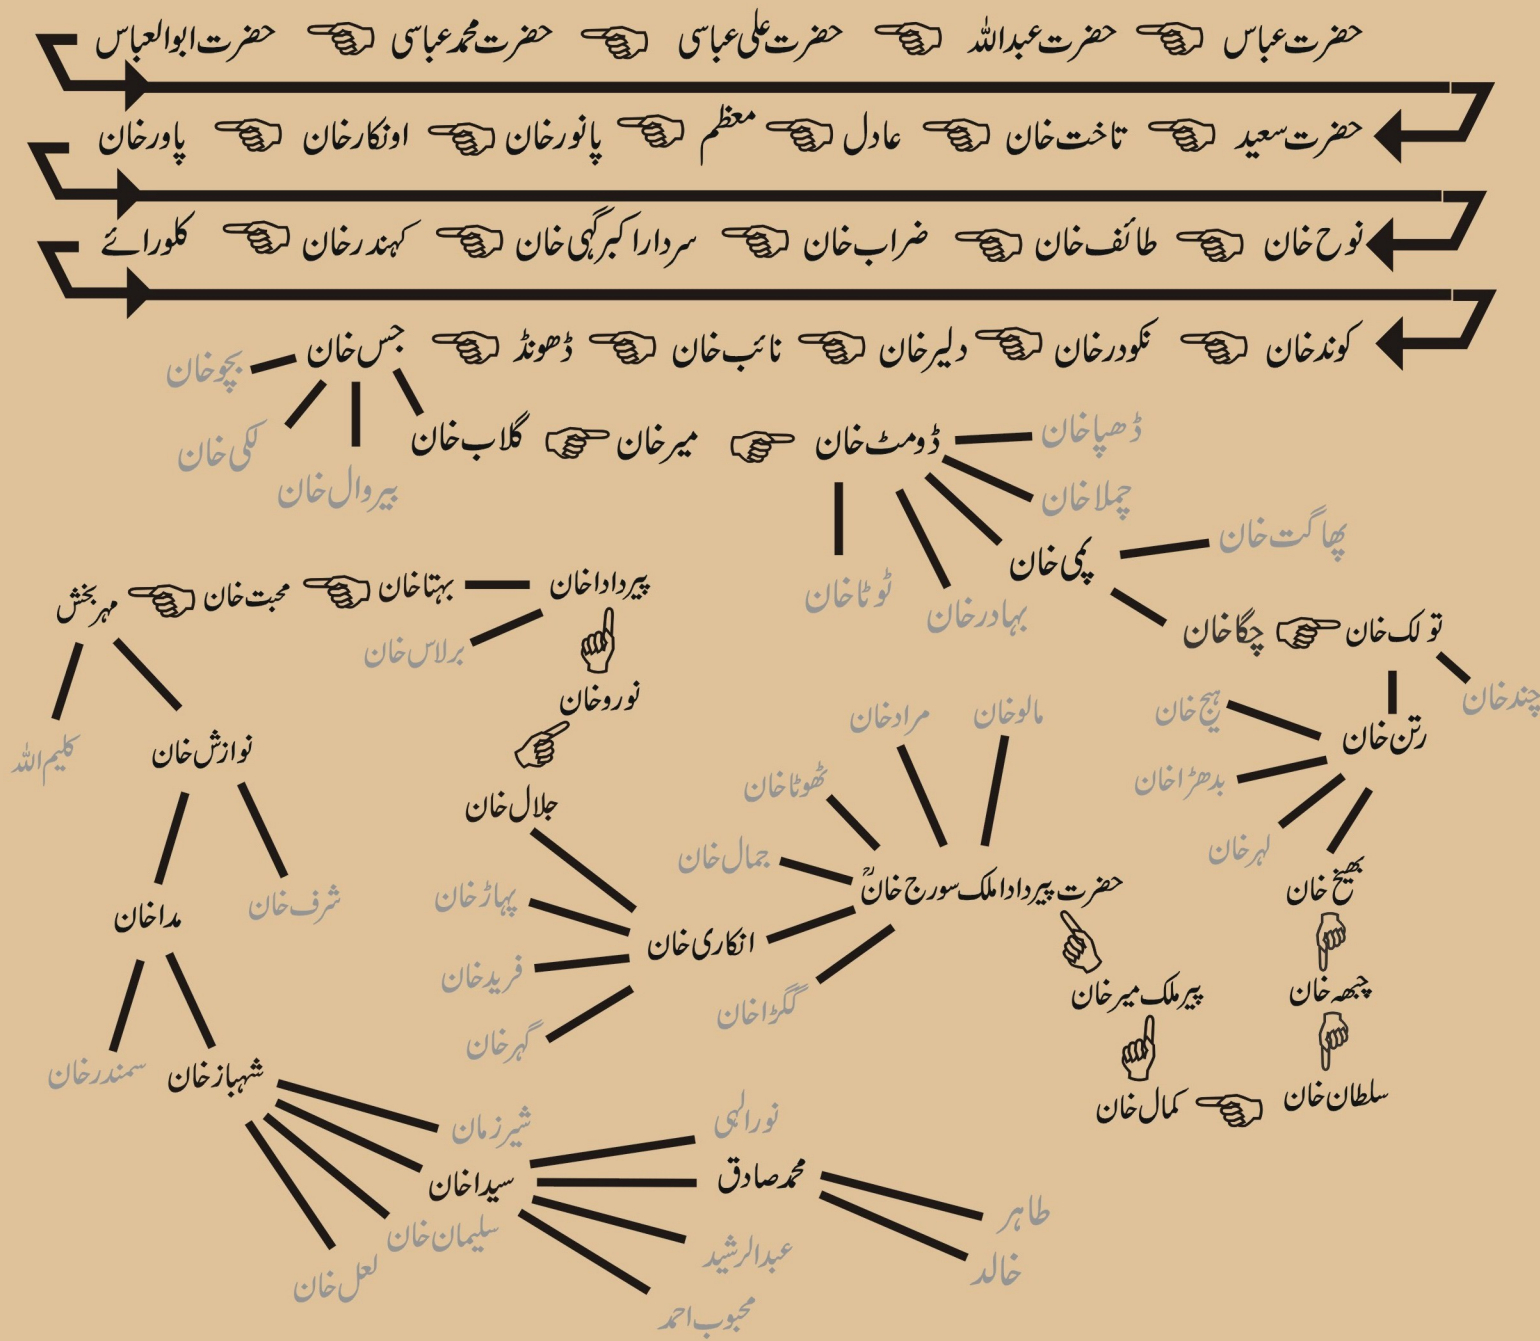 حضرت عباس حضرت عبداللہ حضرت علی عباسی حضرت محمد عباسی حضرت ابوالعباس
حضرت سعید تاخت خان عادل معظم پانور خان اونکار خان پاور خان
نوح خان طائف خان ضراب خان سردار اکبر گہی خان کہندر خان کلورائے
کوند خان نکودر خان دلیر خان نائب خان ڈھونڈ جس خان
بچو خان
لکی خان
بیروال خان
گلاب خان میر خان ڈومٹ خان
ڈھپا خان
چملا خان
پمی خان
بہادر خان
ٹوٹا خان
پھاگت خان
چگا خان تولک خان
چند خان
رتن خان
بدھڑا خان
لہر خان
بھیخ خان
چبھہ خان
سلطان خان
کمال خان
پیر ملک میر خان
حضرت پیر دادا ملک سورج خانؒ
مالو خان
مراد خان
ٹھوٹا خان
جمال خان
انکاری خان
گگڑا خان
جلال خان
پہاڑ خان
فرید خان
گہر خان
نورو خان
پیر دادا خان
بہتا خان
برلاس خان
محبت خان
مہر بخش
کلیم اللہ
نوازش خان
شرف خان
مدا خان
سمندر خان
شہباز خان
شیر زمان
سیدا خان
سلیمان خان
لعل خان
نور الہی
محمد صادق
عبدالرشید
محبوب احمد
طاہر
خالد